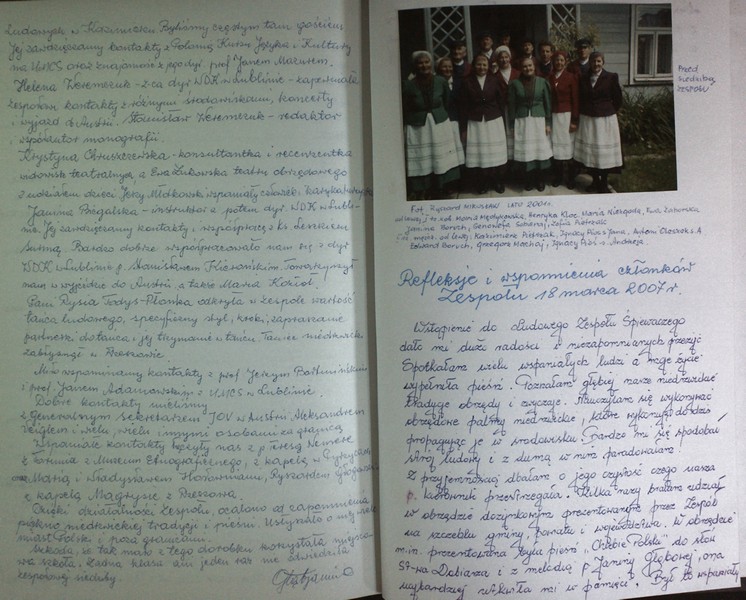 Ludowych w Kazimierzu. Byliśmy częstym tam gościem
Jej zawdzięczamy kontakty z Polonią, Kursu Języka i Kultury
na UMCS oraz znajomość z prof. Janem Mazurem.
Helena Weremczuk - z-ca dyr WDK w Lublinie -
zespołem kontakty z różnymi środowiskami, koncerty
i wyjazd do Austrii. Stanisław Weremczuk - redaktor
i współautor monografii.
Krystyna Chruszczewska - konsultantka i recenzentka
widowisk teatralnych, a Ewa Żukowska teatru obrzędowego
z udziałem dzieci. Jerzy wspaniały człowiek
Janina Biegalska - instruktor a potem dyr. WDK w Lubli-
nie. Jej zawdzięczamy kontakty i współpracę z ks.
Bardzo dobrze współpracowało nam się z dyr
WDK w Lublinie p. Stanisławem
nam w wyjeździe do Austrii, a także Maria Kozioł.
Pani Rysia odkryła w zespole wartość
tańca ludowego, specyficzny styl, kroki, zapraszanie
partnerki do tańca i jej trzymanie w tańcu. Taniec
w Rzeszowie.
Miło wspominamy kontakty z prof. Jerzym Bartmińskim
i prof. Janem Adamowskim z UMCS w Lublinie.
Dobre kontakty mieliśmy
z Generalnym Sekretarzem IOV w Austrii Aleksandrem
Veiglem i wielu, wielu innymi osobami za granicą
Wspaniałe kontakty łączyły nas z p. Teresą
z Muzeum Etnograficznego, z kapelą
oraz Marią i Władysławem Ryszardem
z kapelą z Rzeszowa.
Dzięki działalności Zespołu, ocalono od zapomnienia
piękno tradycje i pieśni. Usłyszało o niej wiele
miast Polski i poza granicami.
Szkoda, że tak mało z tego dorobku korzystała miejsco-
wa szkoła, żadna klasa ani jeden raz nie odwiedziła
zespołowej siedziby.
Przed
siedzibą
zespołu
Fot. Ryszard LATO 2001 r.
od lewej: I rz. sto. Maria Henryka Kloc, Maria Niezgoda, Ewa
Janina Boruch, Genowefa Zofia Pietrzak
i rz. mężcz. od lewej: Kazimierz Pietrzak, Ignacy Piróg s. Jana, Antoni
Edward Boruch, Grzegorz Machaj, Ignacy Piróg s. Andrzeja
Refleksje i wspomnienia członków
Zespołu 18 marca 2007 r.
Wstąpienie do Ludowego Zespołu Śpiewaczego
dało mi dużo radości i niezapomnianych przeżyć
Spotkałam wielu wspaniałych ludzi a moje życie
wypełniła pieśń. Poznałam głębiej nasze
tradycje obrzędy i zwyczaje. Nauczyłam się wykonywać
obrzędowe palmy które wykonuję do dziś
propagując je w środowisku. Bardzo mi się spodobał
strój ludowy i z dumą w nim paradowałam
Z przyjemnością dbałam o jego czystość czego nasza
p. kierownik przestrzegała. Kilka razy brałam udział
w obrzędzie dożynkowym prezentowanym przez Zespół
na szczeblu gminy, powiatu i województwa. W obrzędzie
m.in. prezentowana była pieśń „Chlebie Polski" do słów
St-wa i z melodią p. Janiny Głąbowej, ona
najbardziej utkwiła mi w pamięci. Był to wspaniały